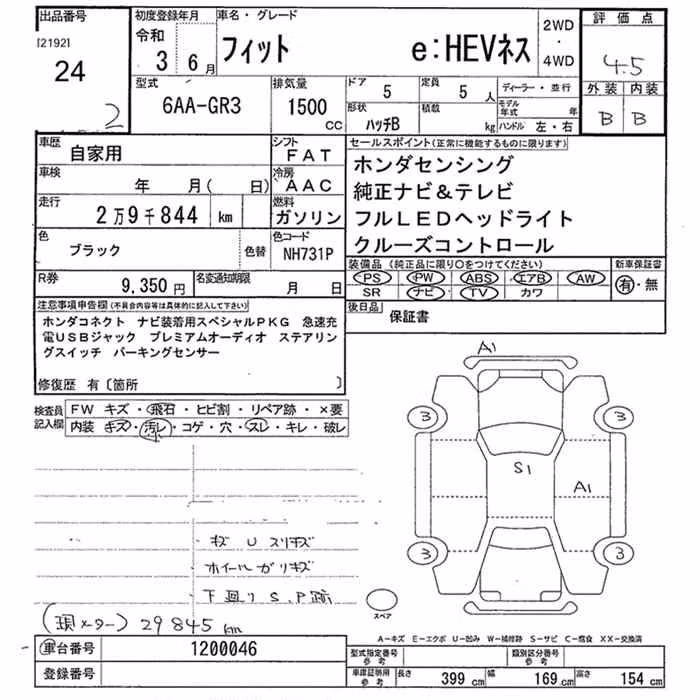 出品番号 初度登録年月 車名・グレード 2WD ・ 4WD 評価点
[2192] 令和 3年 6月 フィット e:HEVネス 4.5
24 型式 排気量 ドア 5 定員 5人 ディーラー・並行 外装 内装
2 6AA-GR3 1500cc 形状 ハッチB 積載 kg モデル年式 年 ハンドル 左・右 B B
車歴 自家用 シフト FAT セールスポイント(正常に機能するものに限ります)
車検 年 月( 日) 冷房 AAC ホンダセンシング
走行 2万9千844 km 燃料 ガソリン 純正ナビ&テレビ
色 ブラック 色替 色コード NH731P フルLEDヘッドライト
クルーズコントロール
R券 9,350円 名変通知期限 月 日 装備品(純正品に限り○をつけてください) 新車保証書
PS PW ABS エアB AW 有・無
SR ナビ TV カワ
注意事項申告欄(不具合内容等は具体的に記入して下さい) 後日品 保証書
ホンダコネクト ナビ装着用スペシャルPKG 急速充
電USBジャック プレミアムオーディオ ステアリン
グスイッチ パーキングセンサー
修復歴 有〔箇所 〕
検査員記入欄 FW キズ・飛石・ヒビ割・リペア跡・×要
内装・キズ・汚レ・コゲ・穴・スレ・キレ・破レ
A1
3 3
S1 A1
3 3
キズ U スリキズ
ホイールガリキズ
下廻りS、P跡
スペア
(現メーター) 29845km
A-キズ E-エクボ U-凹み W-補修跡 S-サビ C-腐食 XX-交換済
車台番号 1200046 型式指定番号 参考 類別区分番号 参考
登録番号 車庫証明用 参考 長さ 399cm 幅 169cm 高さ 154cm